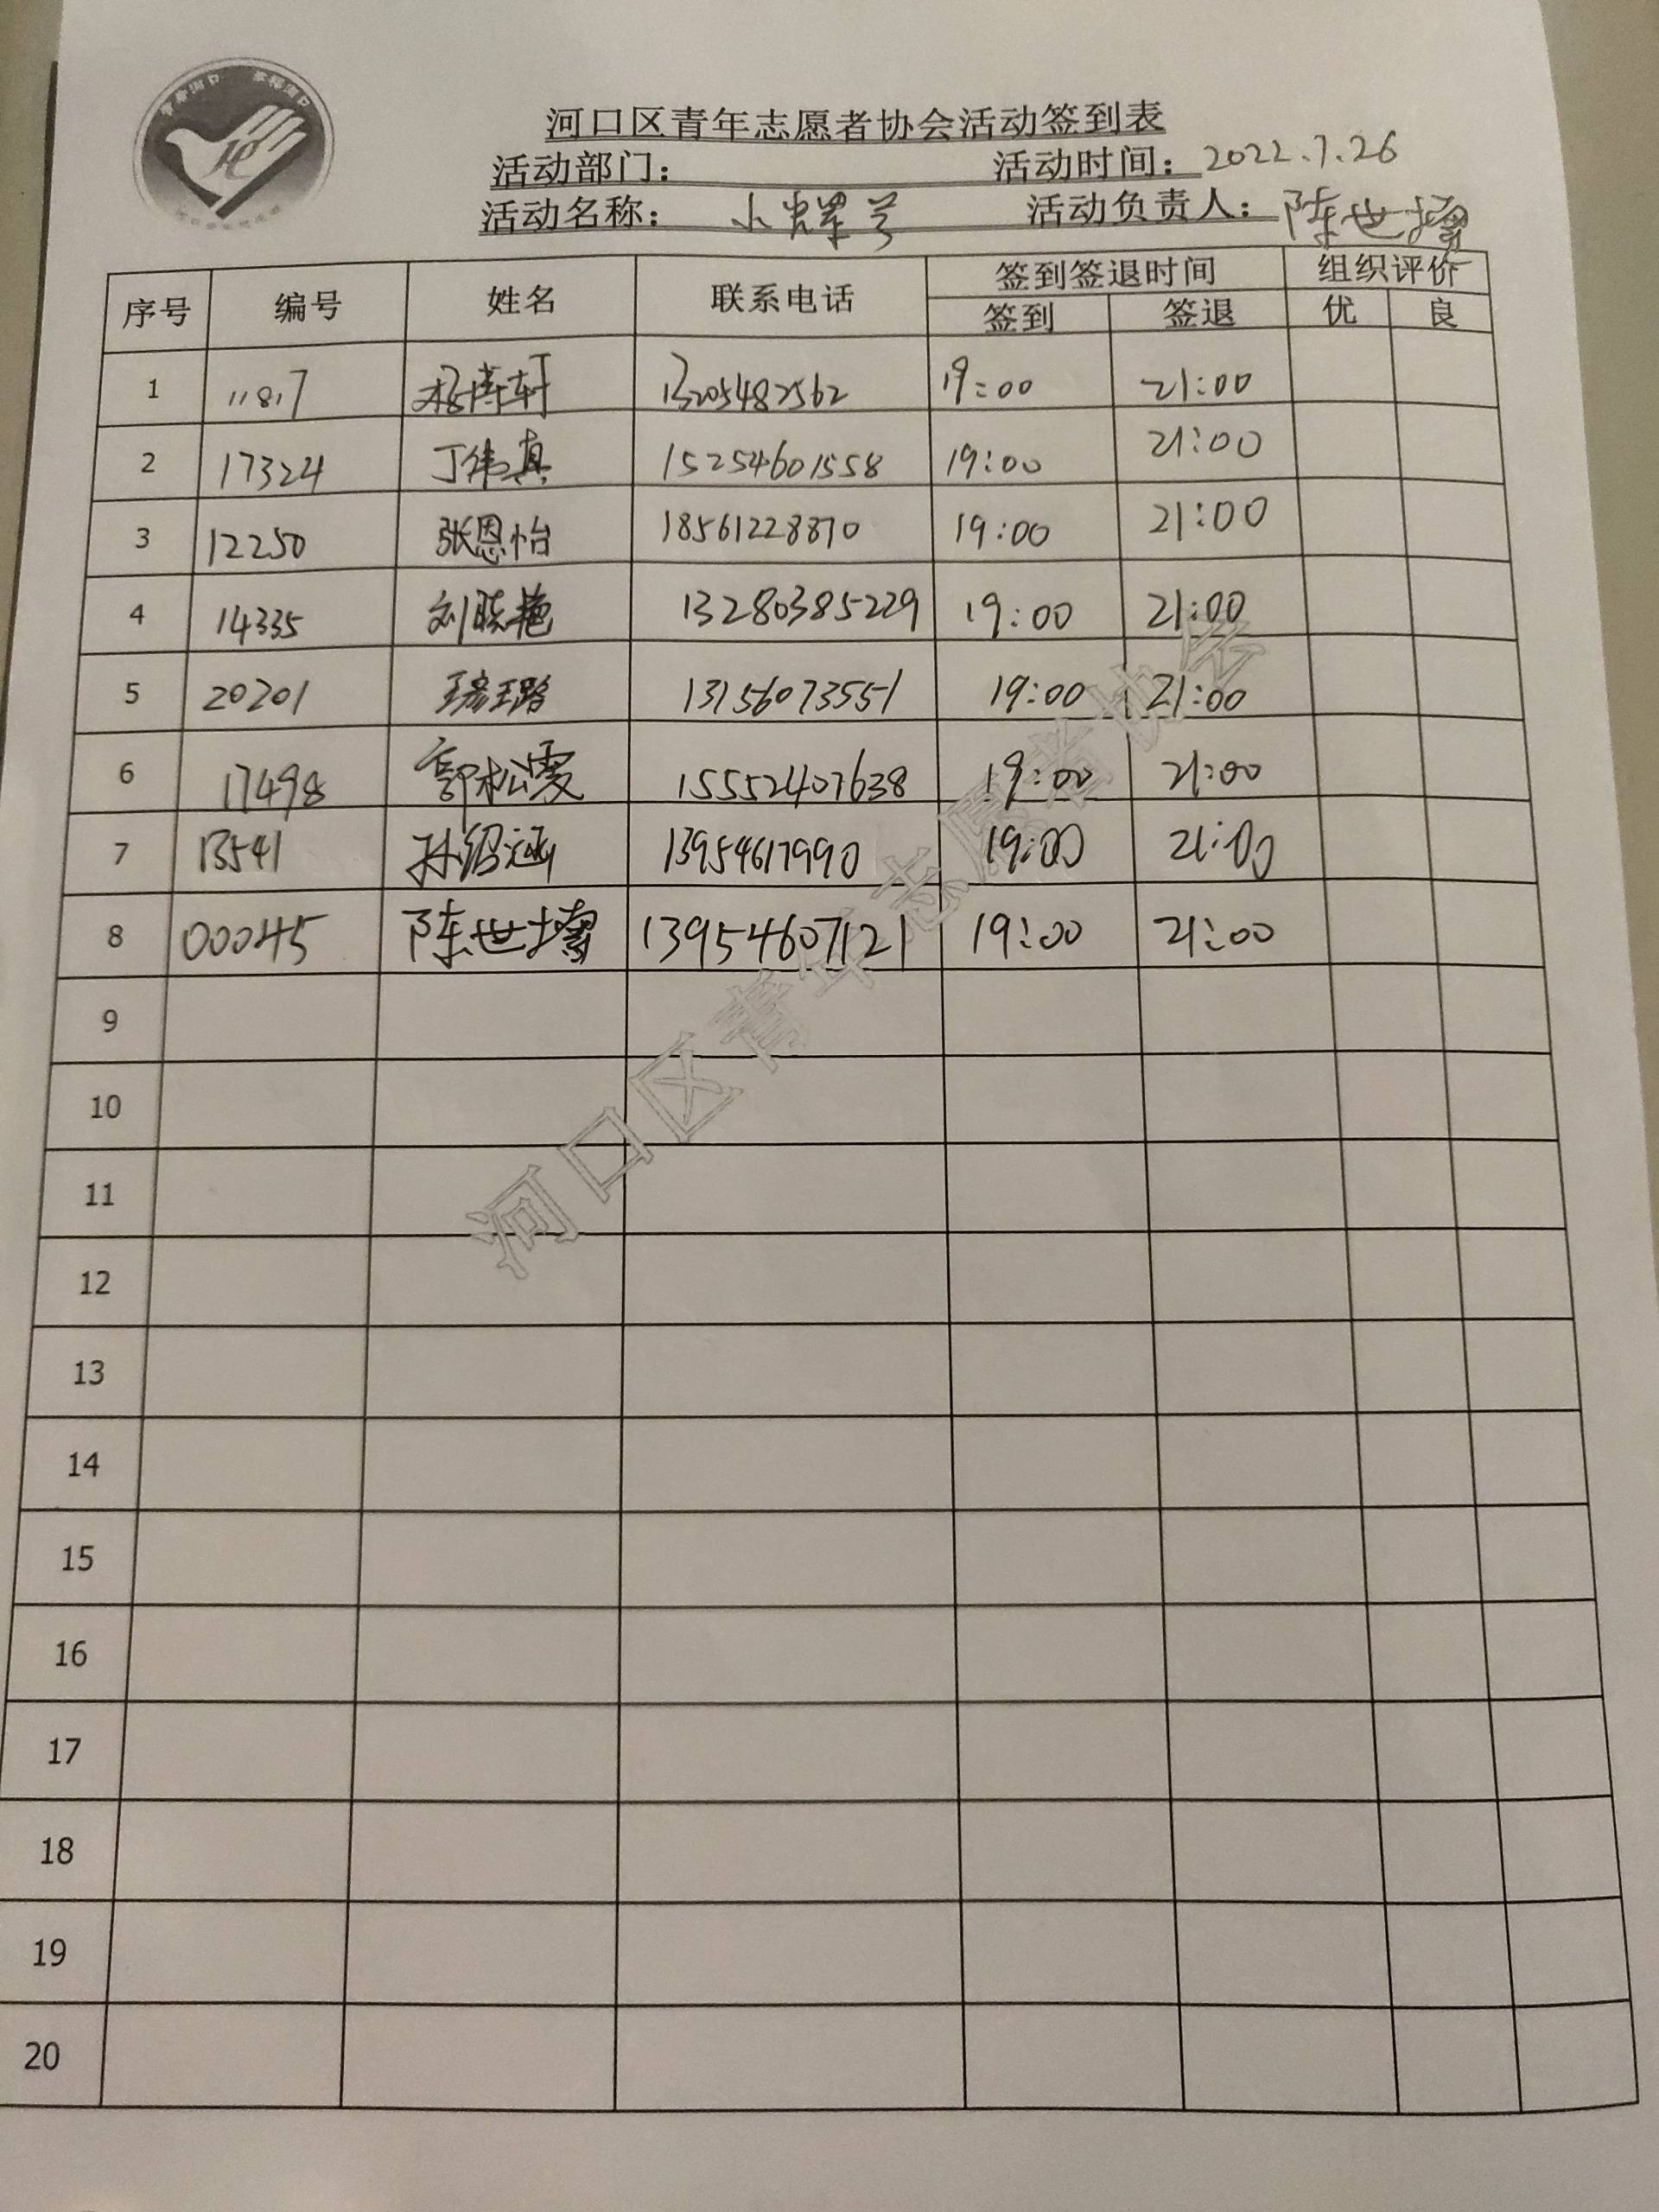 河口区青年志愿者协会活动签到表
活动部门： 活动时间：2022.7.26
活动名称： 小辉号 活动负责人：陈世
序号 编号 姓名 联系电话 签到签退时间 组织评价
签到 签退 优 良
1 11817 杨博轩 13205482562 19:00 21:00
2 17324 丁伟真 15254601558 19:00 21:00
3 12250 张恩怡 18561228870 19:00 21:00
4 14335 刘晓艳 13280385229 19:00 21:00
5 20201 13156073551 19:00 21:00
6 17498 郭松雯 15552407638 19:00 21:00
7 13541 孙绍涵 13954617990 19:00 21:00
8 00045 陈世 13954607121 19:00 21:00
9
10
11
12
13
14
15
16
17
18
19
20
河口区青年志愿者协会